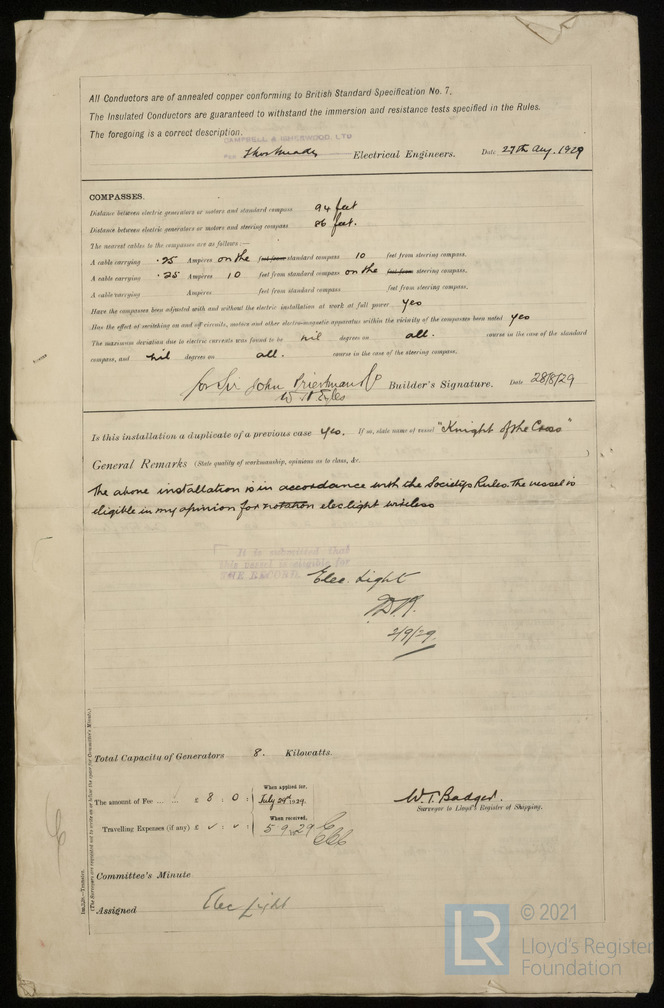 All Conductors are of annealed copper conforming to British Standard Specification No. 7.
The Insulated Conductors are guaranteed to withstand the immersion and resistance tests specified in the Rules.
The foregoing is a correct description.
CAMPBELL & ISHERWOOD, LTD
Electrical Engineers. Date 27th Aug. 1929
COMPASSES.
Distance between electric generators or motors and standard compass 94 feet
Distance between electric generators or motors and steering compass 86 feet.
The nearest cables to the compasses are as follows:—
A cable carrying .25 Ampères on the feet from standard compass 10 feet from steering compass.
A cable carrying .25 Ampères 10 feet from standard compass on the feet from steering compass.
A cable carrying Ampères feet from standard compass feet from steering compass.
Have the compasses been adjusted with and without the electric installation at work at full power yes
Has the effect of switching on and off circuits, motors and other electro-magnetic apparatus within the vicinity of the compasses been noted yes
The maximum deviation due to electric currents was found to be nil degrees on all. course in the case of the standard
compass, and nil degrees on all. course in the case of the steering compass.
for Sir John Priestman & Co Builder's Signature. Date 28/8/29
Is this installation a duplicate of a previous case yes. If so, state name of vessel "Knight of the Cross"
General Remarks (State quality of workmanship, opinions as to class, &c.
The above installation is in accordance with the Society's Rules. The vessel is
eligible in my opinion for notation elec light wireless
It is submitted that
this vessel is eligible for
THE RECORD. Elec. Light
2/9/29.
Total Capacity of Generators 8. Kilowatts.
The amount of Fee £ 8 : 0 : When applied for, July 29th 1929.
Travelling Expenses (if any) £ ✓ : ✓ : When received, 5.9.29
W.T. Badger.
Surveyor to Lloyd's Register of Shipping.
Committee's Minute
Assigned Elec Light
Im.3.28.—Transfer.
(The Surveyors are requested not to write on or below the space for Committee's Minute.)
LR
© 2021
Lloyd's Register
Foundation